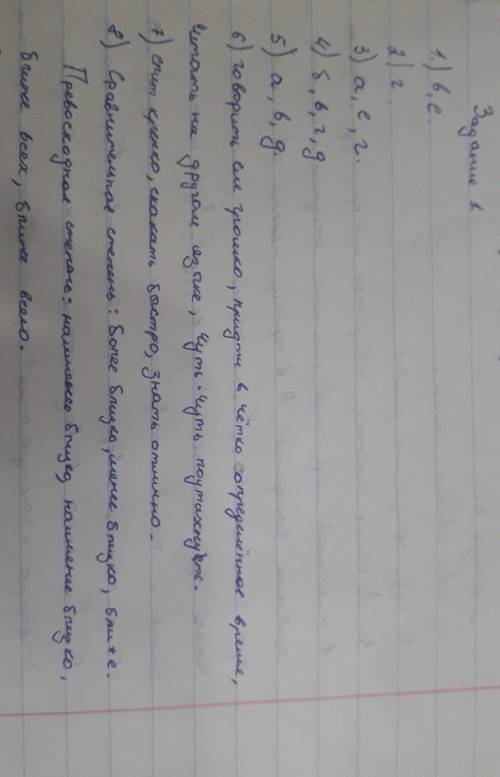 Задание 1
1.) в, е.
2) г.
3) а, е, г.
4) б, в, г, д
5) а, в, д.
6) говорить громко, придти в чётко определённое время,
читать на другом языке, чуть-чуть поутихнуть.
7) спит крепко, скакать быстро, знать отлично.
8) Сравнительная степень: более близко, менее близко, ближе.
Превосходная степень: наиболее близко, наименее близко,
ближе всех, ближе всего.